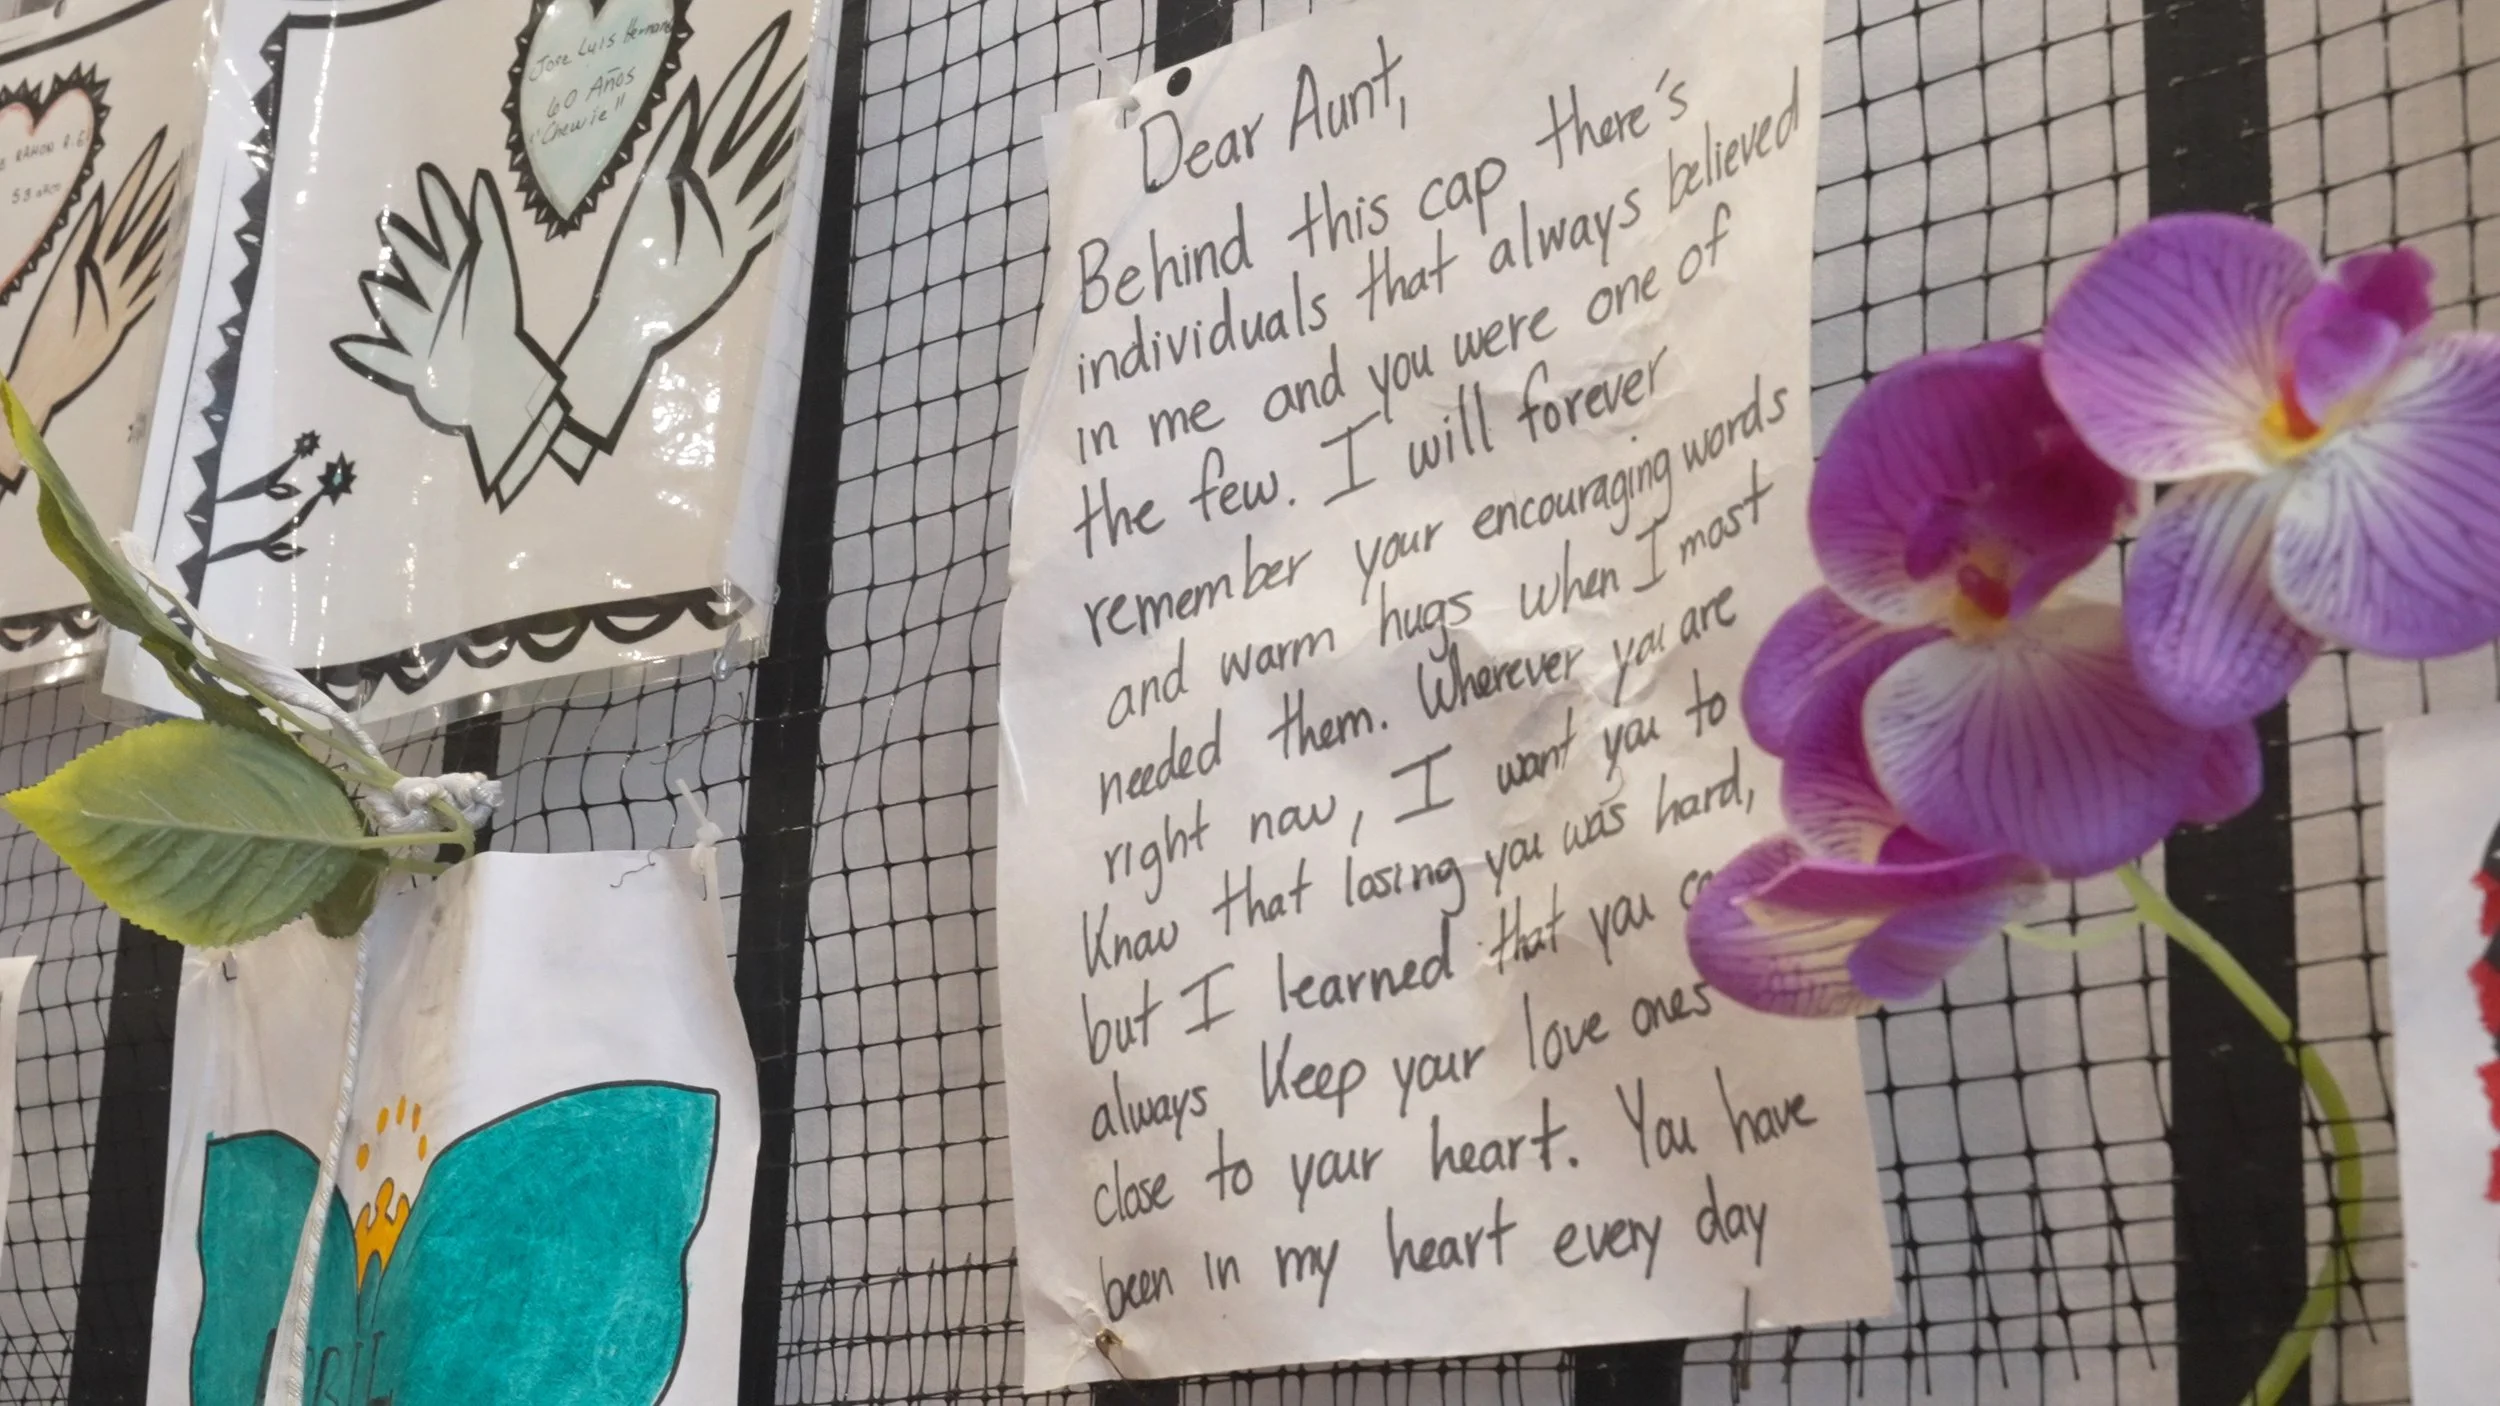 RAMON R.
53 años
Jose Luis
60 Años
"Chewie"
Dear Aunt,
Behind this cap there's
individuals that always believed
in me and you were one of
the few. I will forever
remember your encouraging words
and warm hugs when I most
needed them. Wherever you are
right now, I want you to
Know that losing you was hard,
but I learned that you
always Keep your love ones
close to your heart. You have
been in my heart every day